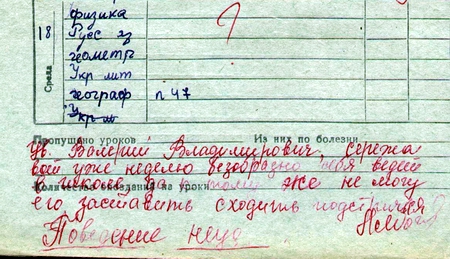 физика
18 Русс яз
геометр
Среда
Укр лит
географ п 47
Укр
Пропущено уроков Из них по болезни
Ув. Валерий Владимирович, Сережа
вой уже неделю безобразно себя ведет
в школе, да к тому же не могу
Количество опозданий на уроки
его заставить сходить подстричься
Поведение неуд